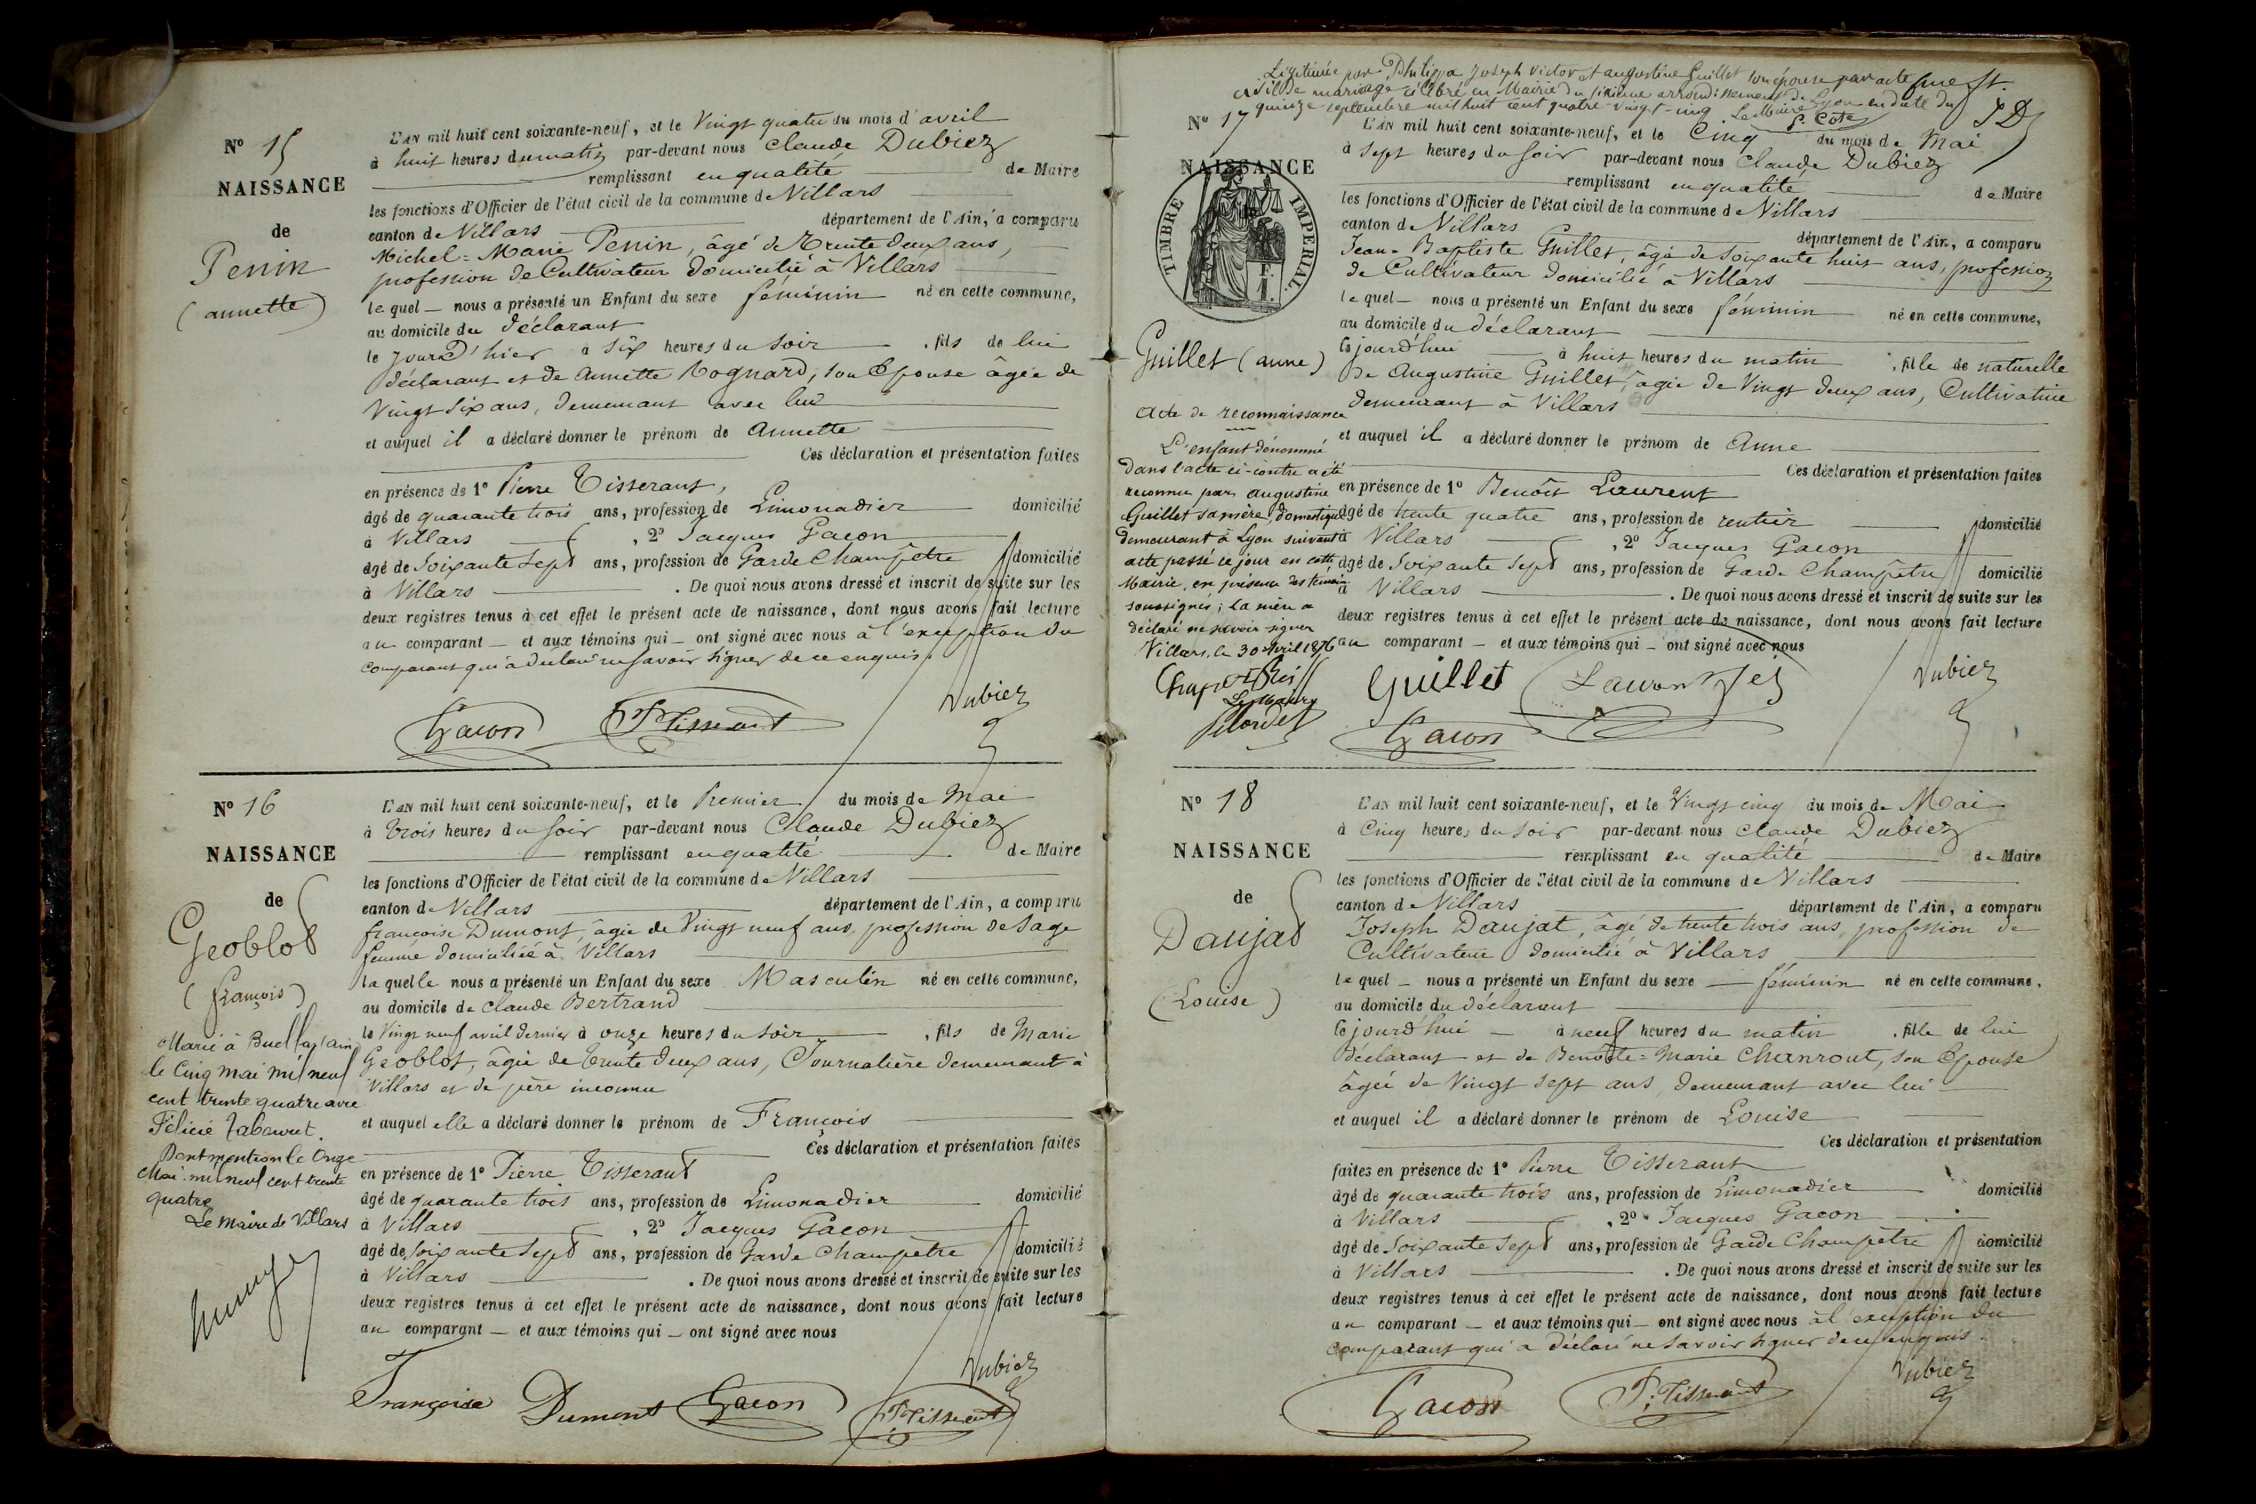 N° 15
NAISSANCE
de
Penin
(annette)
L'AN mil huit cent soixante-neuf, et le Vingt quatre du mois d'avril
à huit heures du matin par-devant nous Claude Dubiez
remplissant en qualité de Maire
les fonctions d'Officier de l'état civil de la commune de Villars
canton de Villars département de l'Ain, a comparu
Michel=Marie Penin, âgé de Trente deux ans,
profession de Cultivateur domicilié à Villars
le quel — nous a présenté un Enfant du sexe féminin né en cette commune,
au domicile du déclarant
le jour d'hier à Six heures du Soir, fils de lui
déclarant et de Annette Rognard, son Epouse âgée de
Vingt Six ans, demeurant avec lui
et auquel il a déclaré donner le prénom de Annette
Ces déclaration et présentation faites
en présence de 1° Pierre Tisserant,
âgé de quarante trois ans, profession de Limonadier domicilié
à Villars, 2° Jacques Gacon
âgé de Soixante Sept ans, profession de Garde Champêtre domicilié
à Villars. De quoi nous avons dressé et inscrit de suite sur les
deux registres tenus à cet effet le présent acte de naissance, dont nous avons fait lecture
au comparant — et aux témoins qui — ont signé avec nous à l'exception du
comparant qui a déclaré ne savoir signer de ce enquis.
Gacon P Tisserant Dubiez
N° 16
NAISSANCE
de
Geoblot
(François)
Marié à Buellas (ain)
le Cinq mai mil neuf
cent trente quatre avec
Félicie Tabouret.
Dont mention le Onze
Mai mil neuf cent trente
quatre
Le Maire de Villars
L'AN mil huit cent soixante-neuf, et le Premier du mois de Mai
à Trois heures du Soir par-devant nous Claude Dubiez
remplissant en qualité de Maire
les fonctions d'Officier de l'état civil de la commune de Villars
canton de Villars département de l'Ain, a comparu
françoise Dumont, âgée de Vingt neuf ans, profession de Sage
femme domiciliée à Villars
la quelle nous a présenté un Enfant du sexe Masculin né en cette commune,
au domicile de Claude Bertrand
le Vingt neuf avril dernier à onze heures du Soir, fils de Marie
Geoblot, âgée de Trente deux ans, Journalière demeurant à
Villars et de père inconnu
et auquel elle a déclaré donner le prénom de François
Ces déclaration et présentation faites
en présence de 1° Pierre Tisserant
âgé de quarante trois ans, profession de Limonadier domicilié
à Villars, 2° Jacques Gacon
âgé de Soixante Sept ans, profession de Garde Champêtre domicilié
à Villars. De quoi nous avons dressé et inscrit de suite sur les
deux registres tenus à cet effet le présent acte de naissance, dont nous avons fait lecture
au comparant — et aux témoins qui — ont signé avec nous
Dubiez
Françoise Dumont Gacon P Tisserant
Légitimée par Philippa Joseph Victor et augustine Guillet son épouse par acte
civil de mariage célébré en Mairie du sixième arrondissement de Lyon en date du
quinze septembre mil huit cent quatre-vingt-cinq Le Maire
P. Cote
N° 17
NAISSANCE
TIMBRE IMPERIAL.
Guillet (anne)
Acte de reconnaissance
L'enfant dénommé
dans l'acte ci-contre a été
reconnu par augustine
Guillet sa mère, domestique
demeurant à Lyon suivant
acte passé ce jour en cette
Mairie, en présence des témoins
soussignés; la mère a
déclaré ne savoir signer
Villars, le 30 avril 1876
Le Maire
L'AN mil huit cent soixante-neuf, et le Cinq du mois de Mai
à Sept heures du Soir par-devant nous Claude Dubiez
remplissant en qualité de Maire
les fonctions d'Officier de l'état civil de la commune de Villars
canton de Villars département de l'Ain, a comparu
Jean-Baptiste Guillet, âgé de Soixante huit ans, profession
de Cultivateur domicilié à Villars
le quel — nous a présenté un Enfant du sexe féminin né en cette commune,
au domicile du déclarant
Ce jourd'hui à huit heures du matin, fille de naturelle
De Augustine Guillet, âgée de Vingt deux ans, Cultivatrice
demeurant à Villars
et auquel il a déclaré donner le prénom de Anne
Ces déclaration et présentation faites
en présence de 1° Benoît Laurent
âgé de trente quatre ans, profession de rentier domicilié
à Villars, 2° Jacques Gacon
âgé de Soixante Sept ans, profession de Garde Champêtre domicilié
à Villars. De quoi nous avons dressé et inscrit de suite sur les
deux registres tenus à cet effet le présent acte de naissance, dont nous avons fait lecture
au comparant — et aux témoins qui — ont signé avec nous
Guillet Laurent Dubiez
Gacon
N° 18
NAISSANCE
de
Daujat
(Louise)
L'AN mil huit cent soixante-neuf, et le Vingt cinq du mois de Mai
à Cinq heures du Soir par-devant nous Claude Dubiez
remplissant en qualité de Maire
les fonctions d'Officier de l'état civil de la commune de Villars
canton de Villars département de l'Ain, a comparu
Joseph Daujat, âgé de trente trois ans, profession de
Cultivateur domicilié à Villars
le quel — nous a présenté un Enfant du sexe — féminin né en cette commune,
au domicile du déclarant
Ce jourd'hui — à neuf heures du matin, fille de lui
déclarant et de Benoîte=Marie Chanrout, son Epouse
âgée de Vingt Sept ans, demeurant avec lui
et auquel il a déclaré donner le prénom de Louise
Ces déclaration et présentation
faites en présence de 1° Pierre Tisserant
âgé de quarante trois ans, profession de Limonadier domicilié
à Villars, 2° Jacques Gacon
âgé de Soixante Sept ans, profession de Garde Champêtre domicilié
à Villars. De quoi nous avons dressé et inscrit de suite sur les
deux registres tenus à cet effet le présent acte de naissance, dont nous avons fait lecture
au comparant — et aux témoins qui — ont signé avec nous à l'exception du
comparant qui a déclaré ne savoir signer de ce enquis.
Dubiez
Gacon P. Tisserant